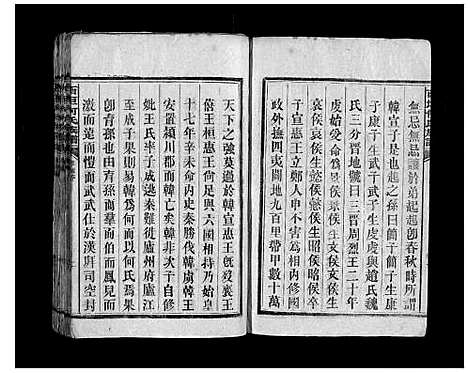 無忌無忌讓於弟起起卽春秋時所謂
韓宣子是也起之孫曰簡子簡子生康
子康子生武子武子生虔虔與趙氏魏
氏三分晉地號曰三晉周烈王二十年
虔始受命爲景侯景侯生文侯文侯生
哀侯哀侯生懿侯懿侯生昭侯昭侯卒
子宣惠王立鄭人申不害爲相內修國
政外撫四夷闢地九百里帶甲數十萬
天下之強莫過於韓宣惠王旣歿襄王
僖王桓惠王尙足與六國相持乃始皇
十七年辛未命內史秦勝虜韓王
安置潁川郡而韓亡矣韓非次子自修
妣王氏率子成遜秦難徙廬州府廬江
至成子果則易韓爲何而以何氏焉果
卽育孫而有孫而羣爲而鳳兒而
激而遠而愷而武武仕於漢與司空封